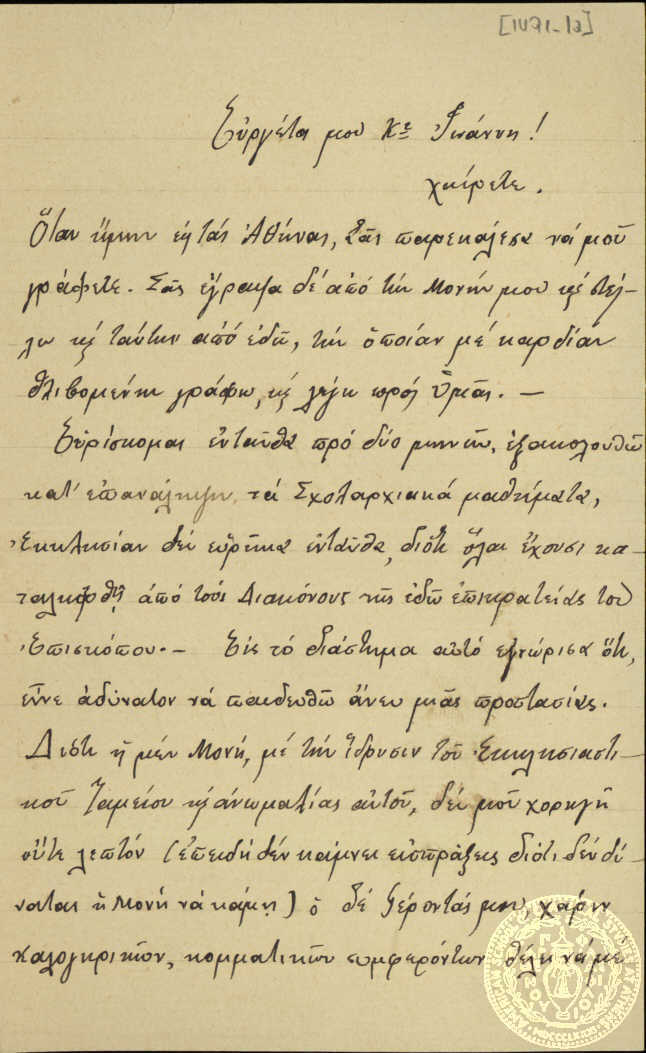 [1421-12]
Εὐεργέτα μου Κε Ἰωάννη!
χαίρετε.
Ὅταν ἤμην εἰς τάς Ἀθήνας, Σᾶς παρεκάλεσα νά μοῦ
γράφετε. Σᾶς ἔγραψα δέ ἀπό τήν Μονήν μου κ στέλ-
λω κ ταύτην ἀπό ἐδῶ, τήν ὁποίαν μέ καρδίαν
θλιβομένην γράφω, κ λέγω πρός Ὑμᾶς. —
Εὑρίσκομαι ἐνταῦθα πρό δύο μηνῶν, ἐξακολουθῶ
κατ' ἐπανάληψιν, τά Σχολαρχιακά μαθήματα,
Ἐκκλησίαν δέν εὕρηκα ἐνταῦθα, διότι ὅλαι ἔχουσι κα-
ταληφθῆ ἀπό τούς Διακόνους τῆς ἐδῶ ἐπικρατείας τοῦ
Ἐπισκόπου. — Εἰς τό διάστημα αὐτό ἐγνώρισα ὅτι,
εἶνε ἀδύνατον νά παιδευθῶ ἄνευ μιᾶς προστασίας.
Διότι ἡ μέν Μονή, μέ τήν ἵδρυσιν τοῦ Ἐκκλησιαστι-
κοῦ Ταμείου κ ἀνωμαλίας αὐτοῦ, δέν μοῦ χορηγῆ
οὔτε λεπτόν (ἐπειδή δέν κάμνει εἰσπράξεις διότι δέν δύ-
ναται ἡ Μονή νά κάμῃ) ὁ δέ Γέροντάς μου, χάριν
καλογηρικῶν, κομματικῶν συμφερόντων θέλει νά μέ